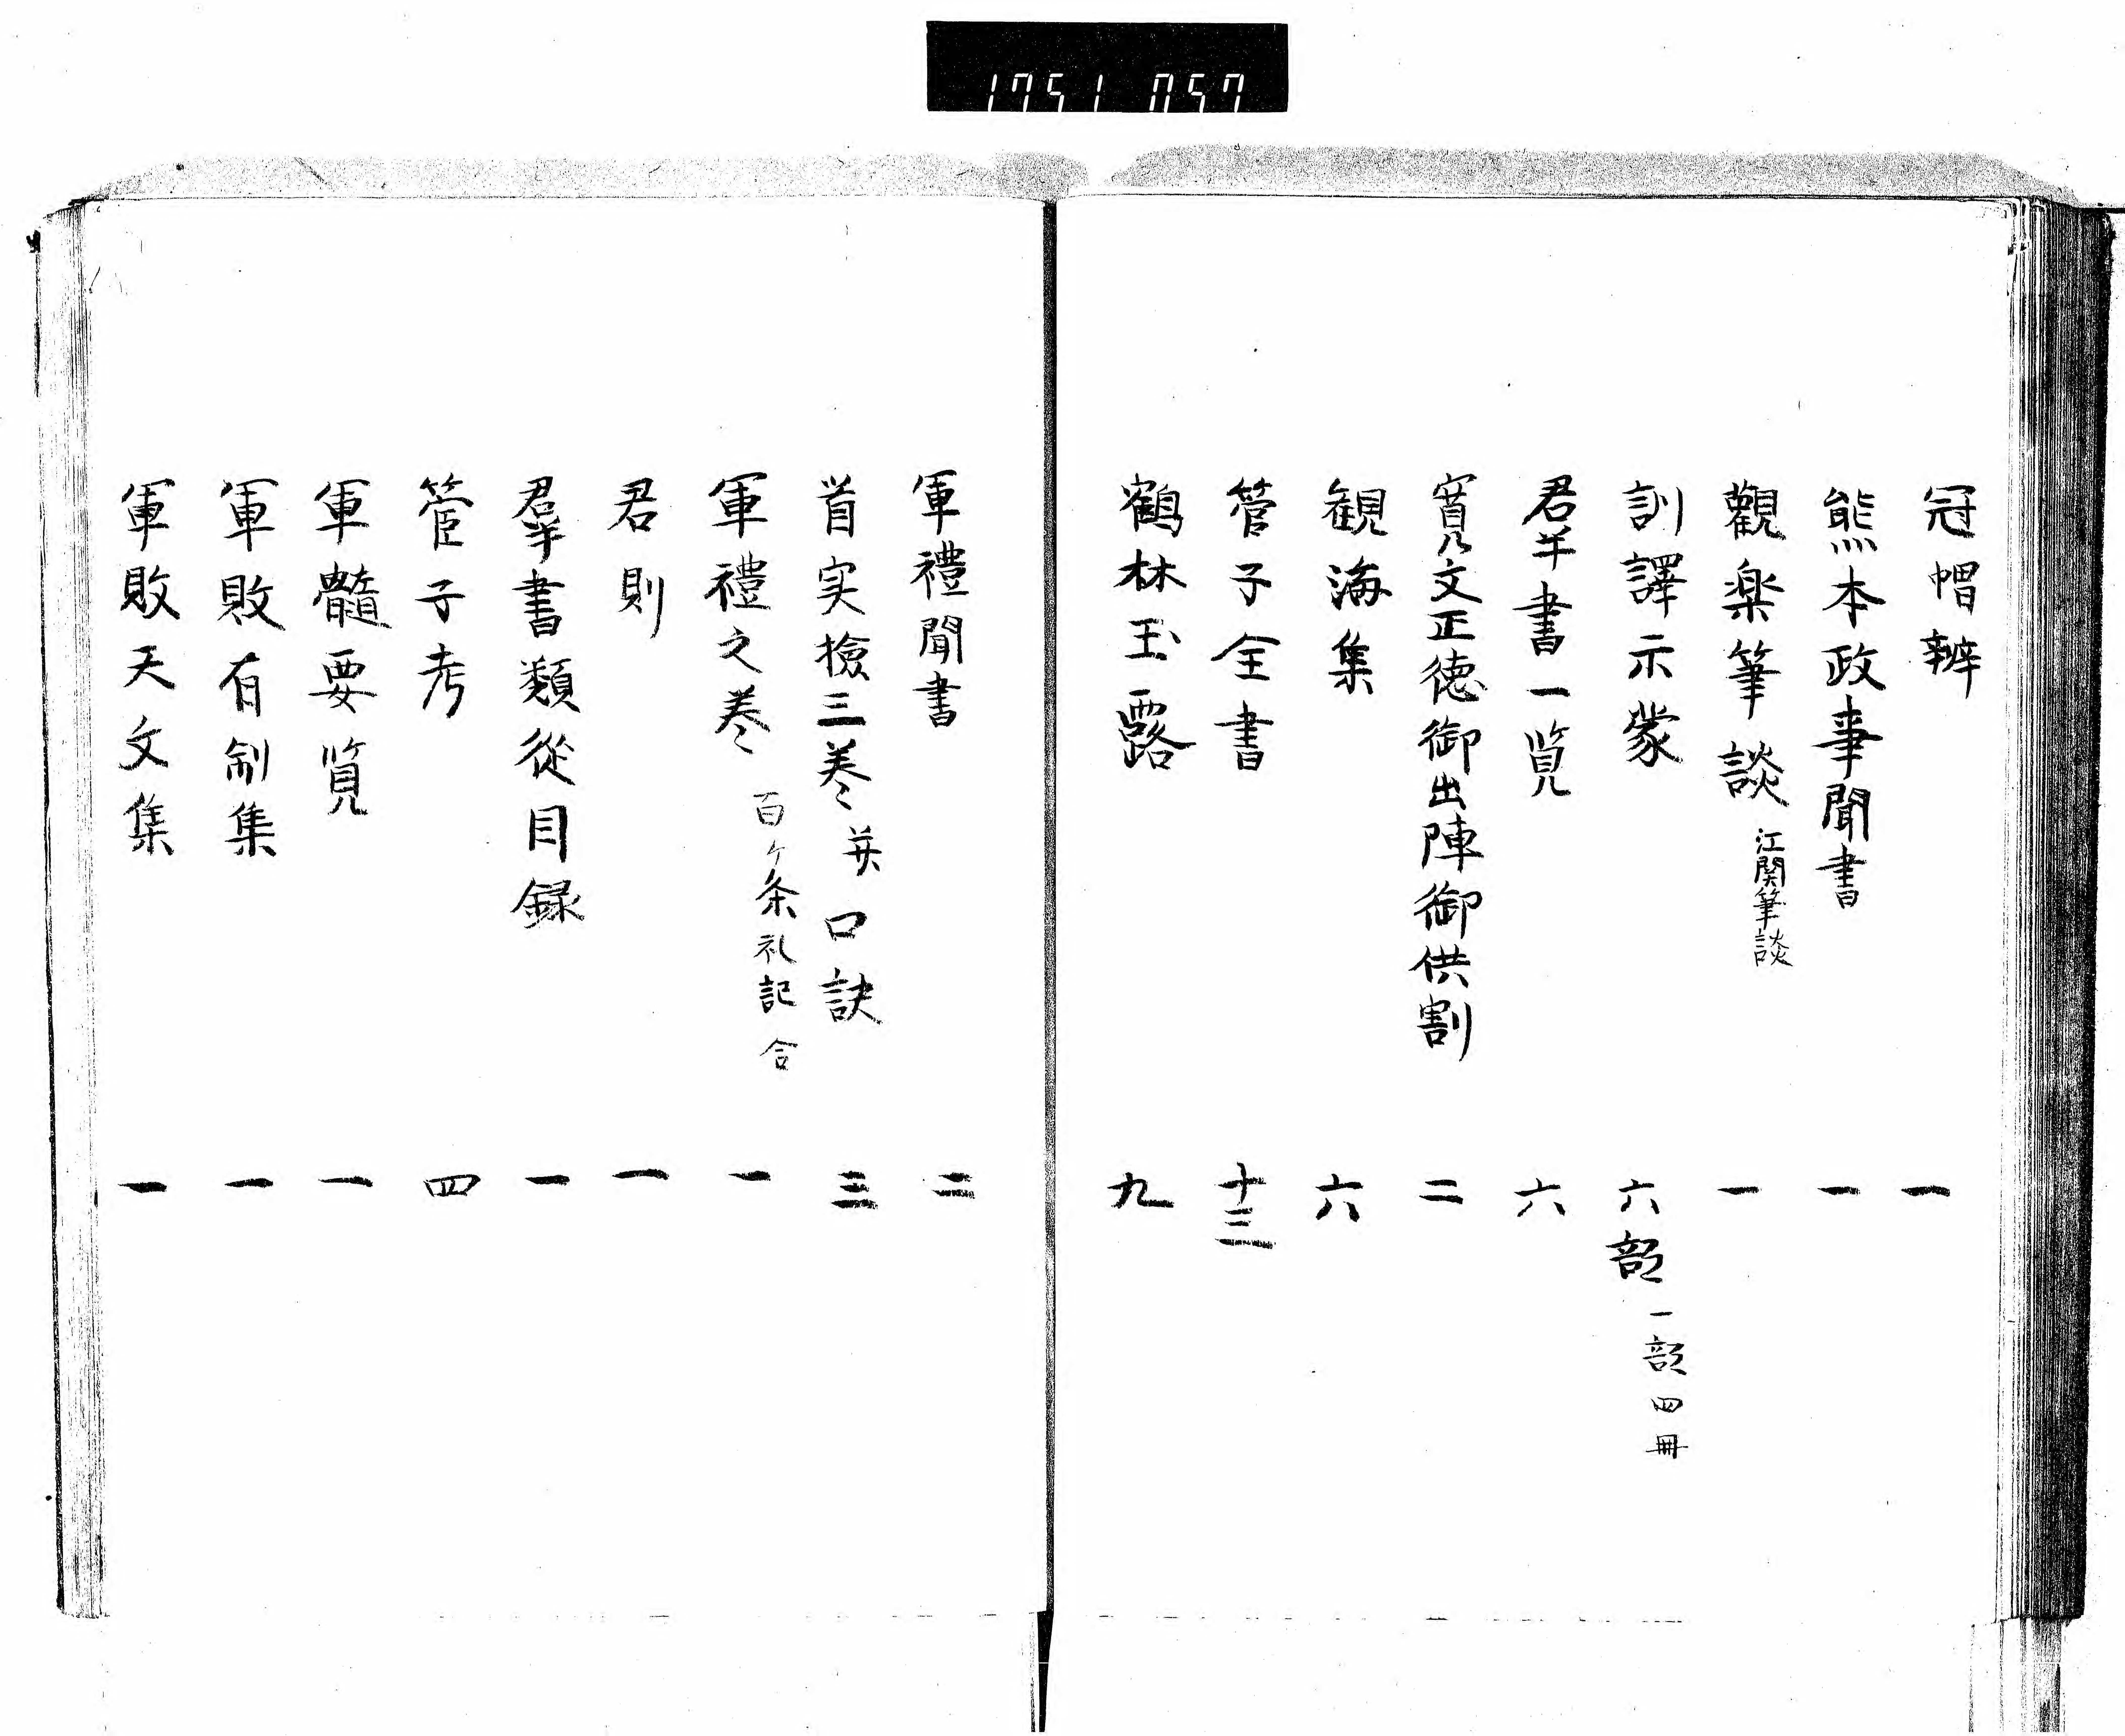 1751 057
冠帽辨 一
熊本政事聞書 一
觀楽筆談 江関筆談 一
訓譯示蒙 六部 一部四冊
羣書一覧 六
寛文正徳御出陣御供割 二
観海集 六
管子全書 十三
鶴林玉露 九
軍禮聞書 二
首実撿三巻并口訣 三
軍禮之巻 百ケ条礼記合 一
君則 一
羣書類從目録 一
管子考 四
軍髓要覧 一
軍敗有制集 一
軍敗天文集 一